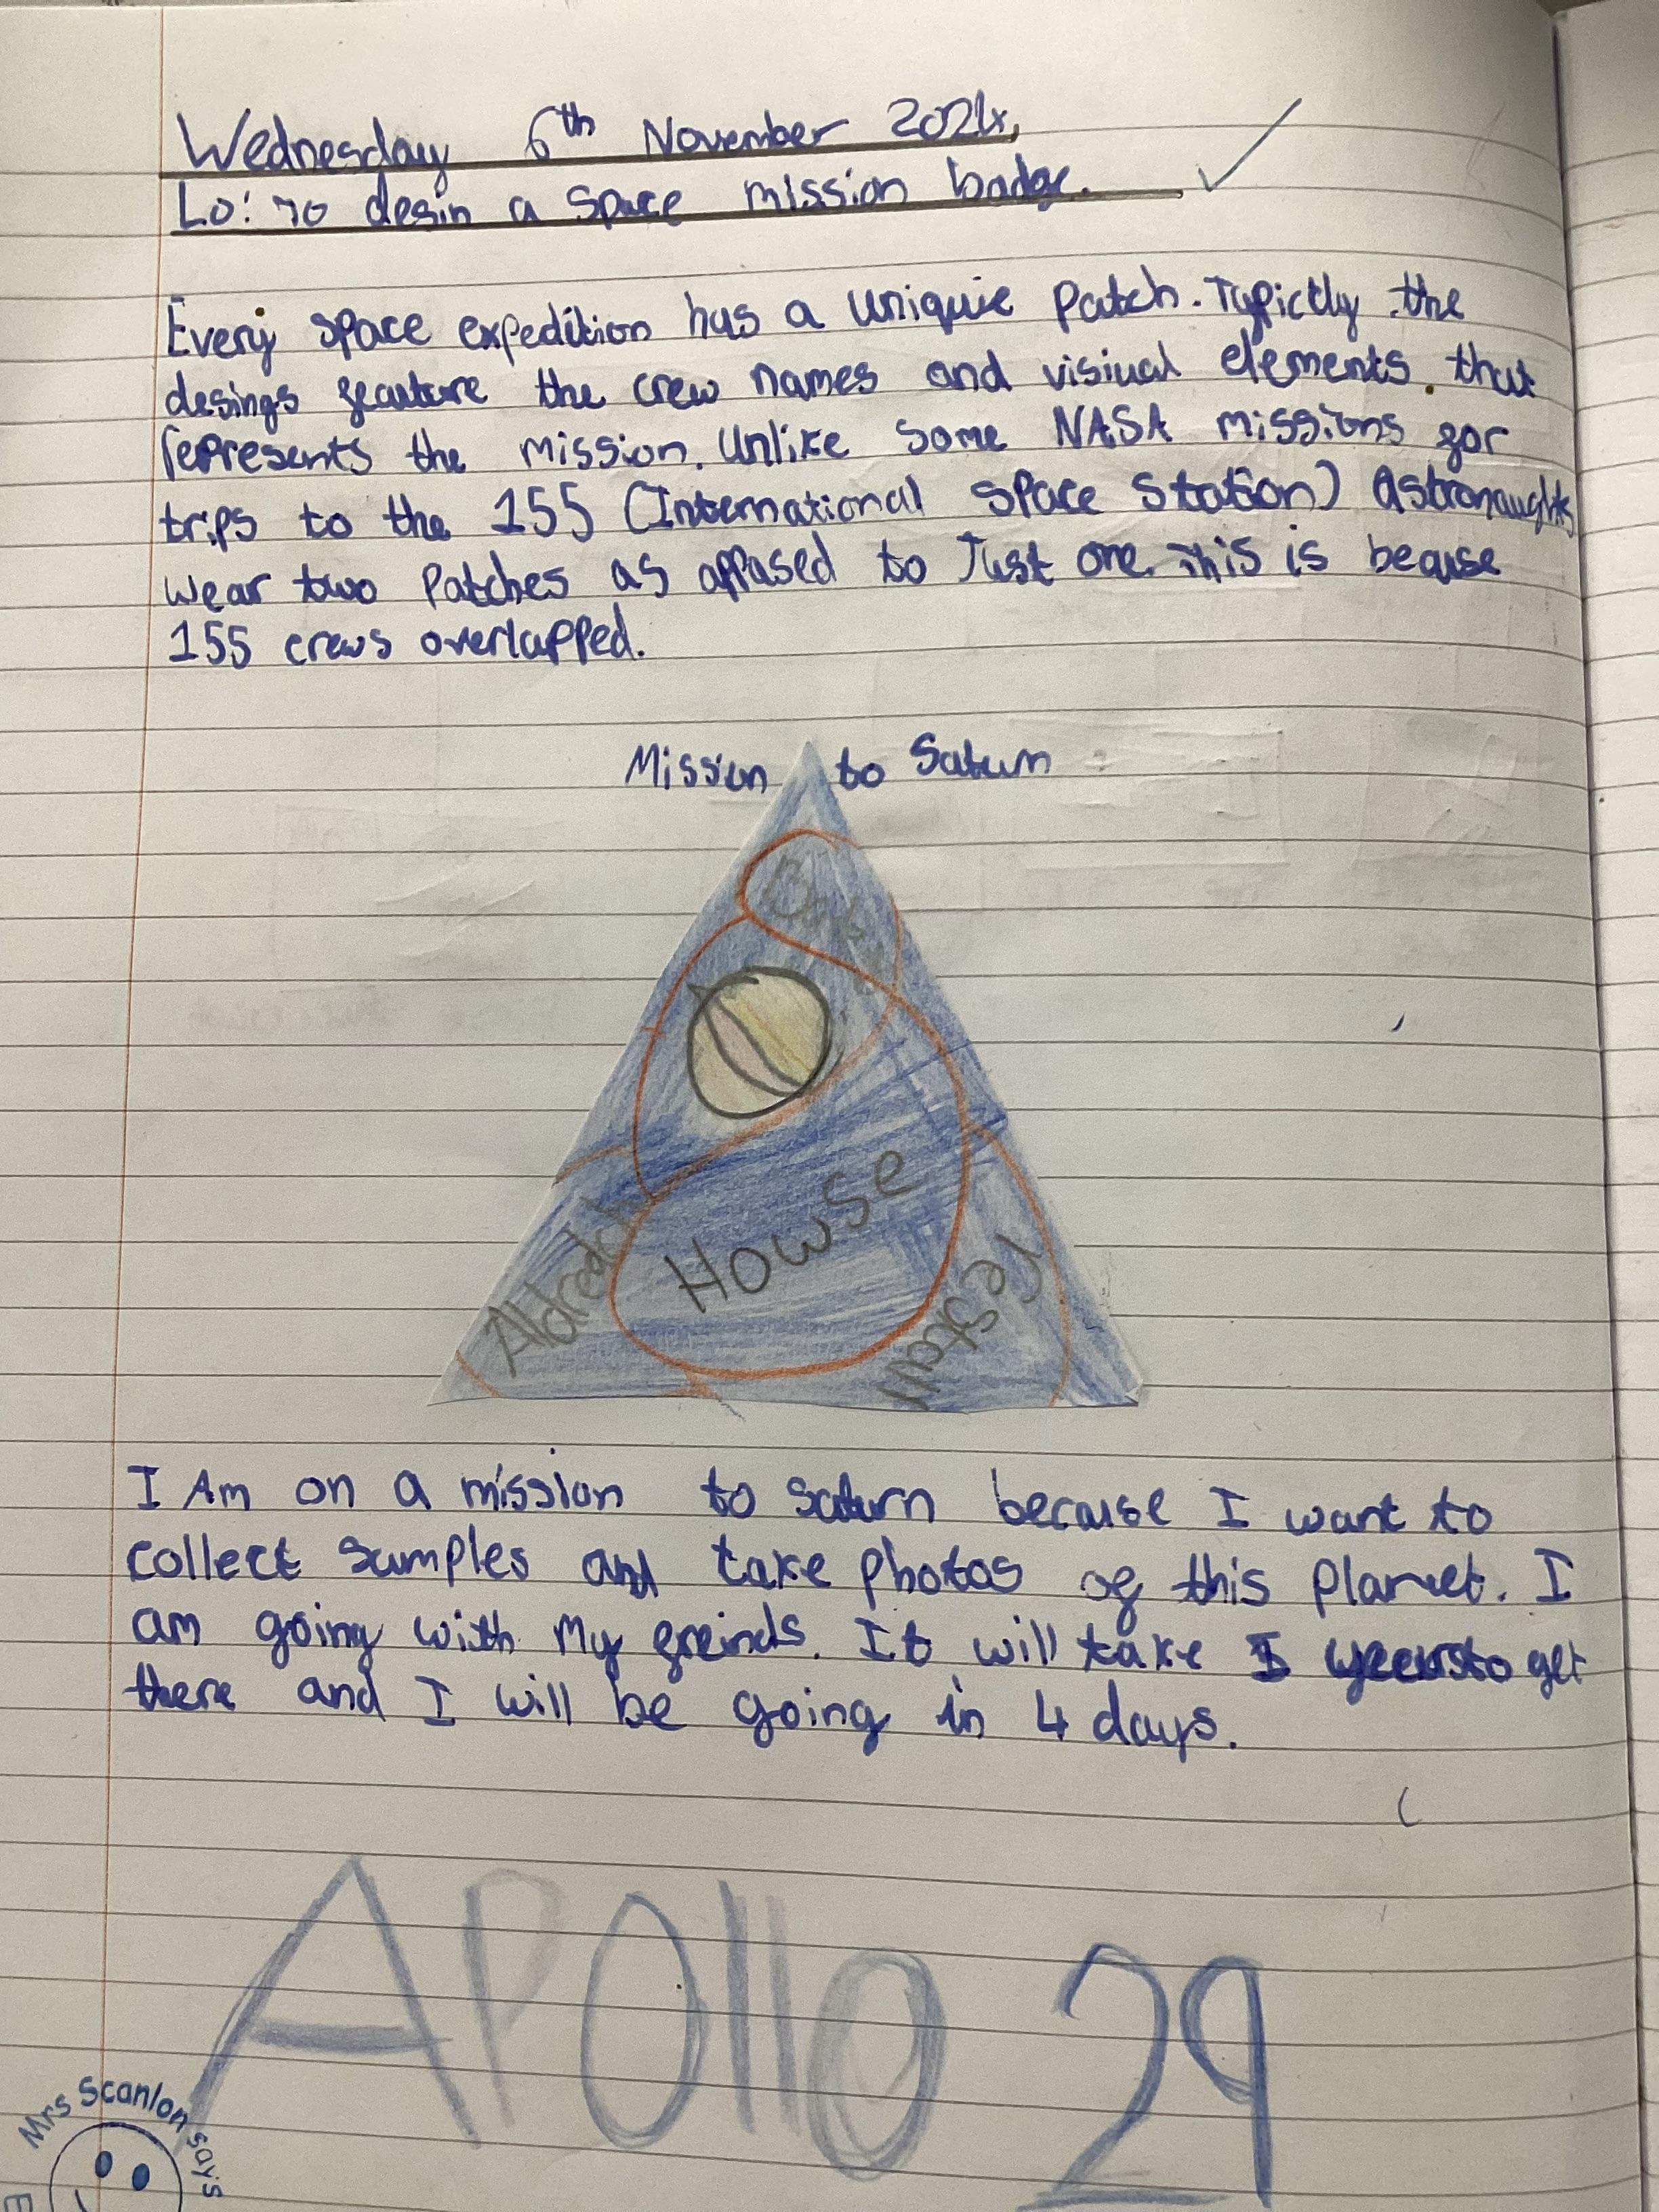 Wednesday 6th November 2024.
Lo: To desin a space mission badge.
Every space expedition has a uniquie patch. Typictly the
desings feauture the crew names and visiual elements that
represents the mission. Unlike some NASA missions for
trips to the 155 (International space station) Astronaughts
wear two patches as appased to Just one. This is beause
155 crews overlapped.
Mission to Saturn
Howse
Aldredch
restall
I Am on a mission to saturn because I want to
collect samples and take photos of this planet. I
am going with my freinds. It will take years to get
there and I will be going in 4 days.
Apollo 29
Mrs Scanlon says